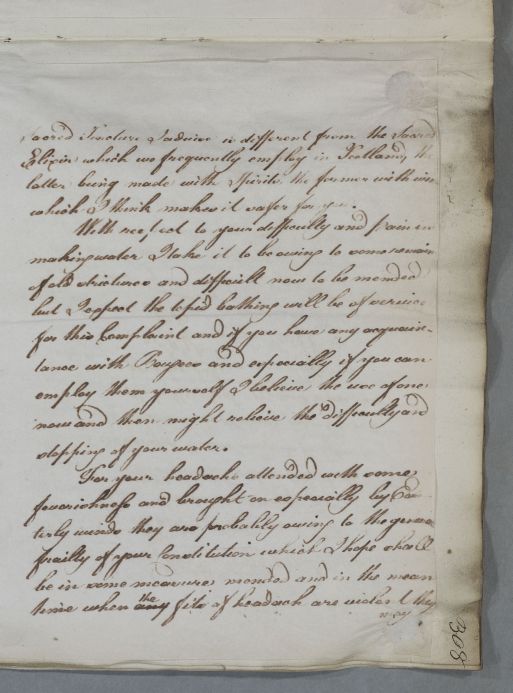 Sacred Tincture I advise is different from the Sacred
Elixir which we frequently employ in Scotland, the
latter being made with Spirits the former with wine
which I think makes it safer for you.
With respect to your difficulty and pain in
making water I take it to be owing to some remain
of old strictures and difficult now to be mended
but I expect the tepid bathing will be of service
for this Complaint and if you have any acquain-
tance with Bougees and especially if you can
employ them yourself I believe the use of one
now and then might relieve the difficulty and
stopping of your water.
For your headachs attended with some
feverishness and brought on especially by Eas-
terly winds they are probably owing to the general
frailty of your Constitution which I hope shall
be in some measure mended and in the mean
time when the any fits of headach are violent they
may
308